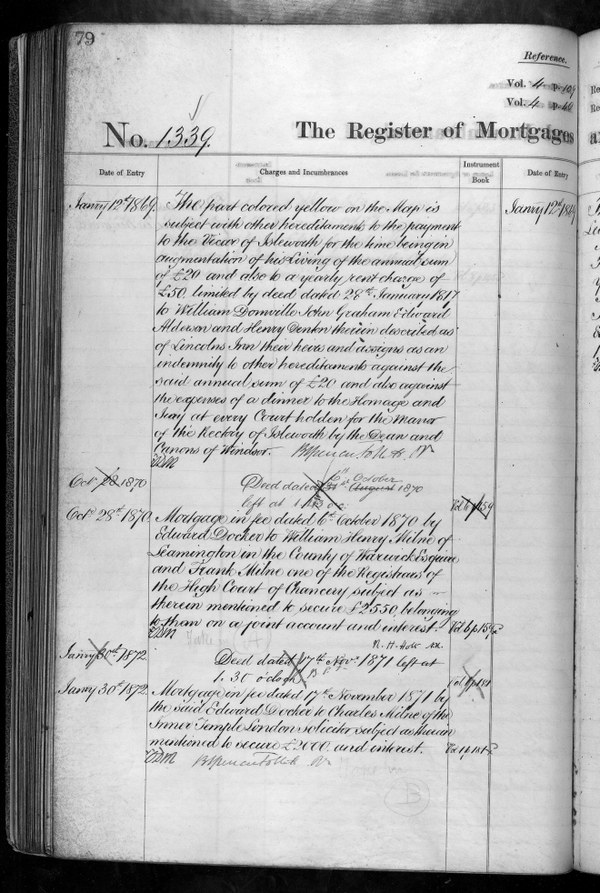 79
Reference.
Vol. 4 p. 109
Vol. 4 p.
No. 1339.
The Register of Mortgages
Date of Entry
Charges and Incumbrances
Instrument Book
Date of Entry
Janry 12th 1869.
The part colored yellow on the Map is
Janry 12th
subject with other hereditaments to the payment
to the Vicar of Isleworth for the time being in
augmentation of his Living of the annual sum
of £20 and also to a yearly rent charge of
£50 limited by deed dated 28th January 1817
to William Domville John Graham Edward
Alderson and Henry Denton therein described as
of Lincolns Inn their heirs and assigns as an
indemnity to other hereditaments against the
said annual sum of £20 and also against
the expenses of a dinner to the Homage and
Jury at every Court holden for the Manor
of the Rectory of Isleworth by the Dean and
Canons of Windsor.
Octr 28 1870
Deed dated 6th October August 1870
left at 1
Octr 28th 1870.
Mortgage in fee dated 6th October 1870 by
Edward Docker to William Henry Milne of
Leamington in the County of Warwick Esquire
and Frank Milne one of the Registrars of
the High Court of Chancery subject as
therein mentioned to secure £2550 belonging
to them on a joint account and interest.
Janry 30th 1872.
Deed dated 17th Novr 1871 left at
1.30 o'clock
Janry 30th 1872.
Mortgage in fee dated 17th November 1871 by
the said Edward Docker to Charles Milne of the
Inner Temple London solicitor subject as therein
mentioned to secure £2000 and interest.